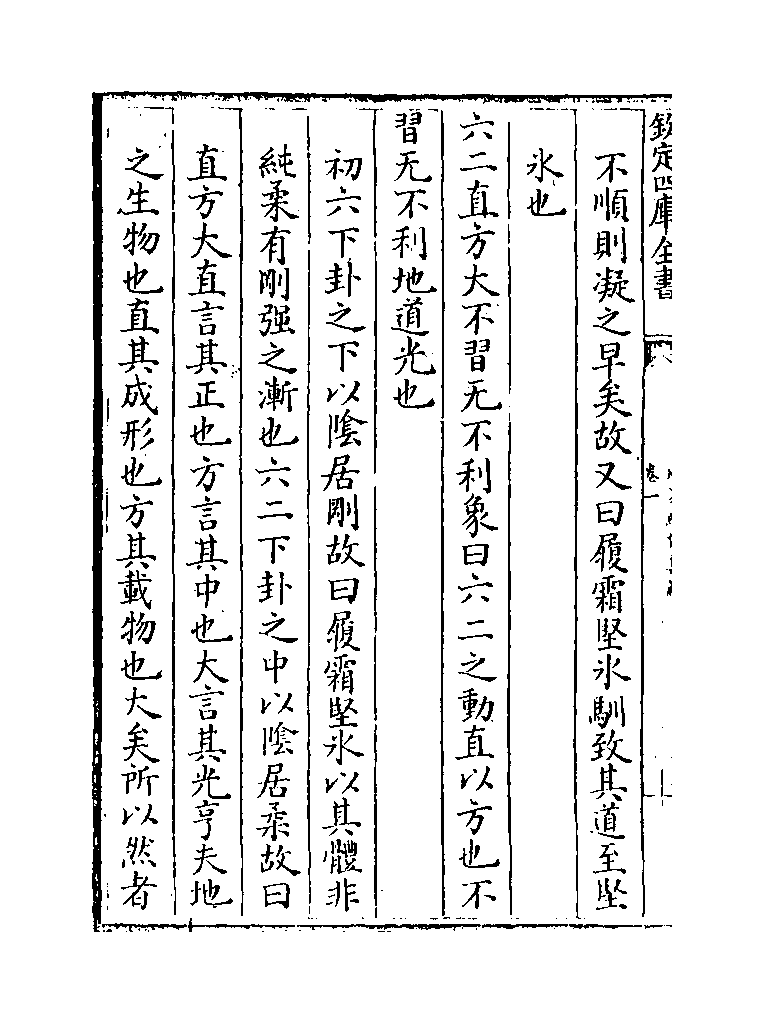 欽定四庫全書
卷一
不順則凝之早矣故又曰履霜堅氷馴致其道至堅
氷也
六二直方大不習无不利象曰六二之動直以方也不
習无不利地道光也
初六下卦之下以陰居剛故曰履霜堅氷以其體非
純柔有剛强之漸也六二下卦之中以陰居柔故曰
直方大直言其正也方言其中也大言其光亨夫地
之生物也直其成形也方其載物也大矣所以然者